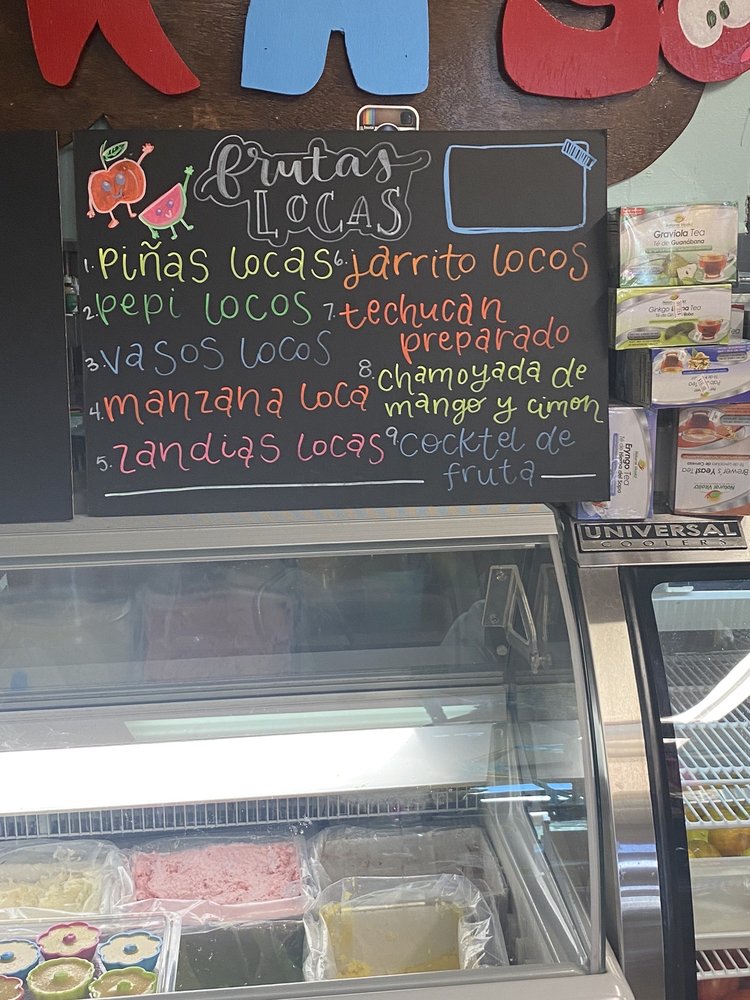 frutas
LOCAS
1. piñas locas
2. pepi locos
3. vasos locos
4. manzana loca
5. zandias locas
6. jarrito locos
7. techucan
preparado
8. chamoyada de
mango y cimon
9. cocktel de
fruta
Graviola Tea
Té de Guanábana
Ginkgo
Eryngo Tea
Brewer's Yeast Tea
UNIVERSAL
COOLERS